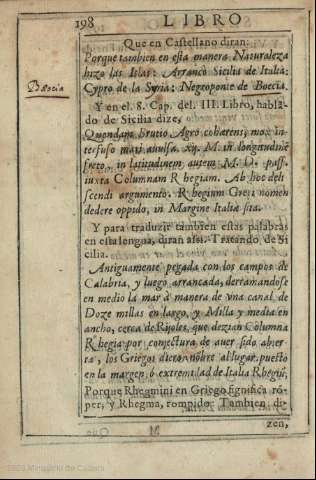 198 LIBRO
Que en Castellano diran:
Porque tambien en esta manera Naturaleza
hizo las Islas: Arrancò Sicilia de Italia:
Cypro de la Syria: Negroponte de Boecia.
Bæocia
Y en el 8. Cap. del III. Libro, hablã-
do de Sicilia dize,
Quondam Brutio Agro cohærens, mox in-
terfuso mari avulsa. xij. M. in longitudinẽ
freto, in latitudinem autem M. D. pass.
iuxta Columnam Rhegiam. Ab hoc dehi
scendi argumento. Rhegium Græci nomen
dedere oppido, in Margine Italiæ sita.
Y para traduzir tambien estas palabras
en esta lengua, diran assi. Tratando de Si
cilia.
Antiguamente pegada con los campos de
Calabria, y luego arrancada, derramandose
en medio la mar à manera de vna canal de
Doze millas en largo, y Milla y media en
ancho, cerca de Rijoles, que dezian Columna
Rhegia por conjectura de auer sido abier
ta, los Griegos dieron nõbre al lugar, puesto
en la margen ò extremidad de Italia Rhegiũ,
Porque Rhegnini en Griego significa rõ-
per, y Rhegma, rompido. Tambien di-
zen,
Ministerio de Cultura